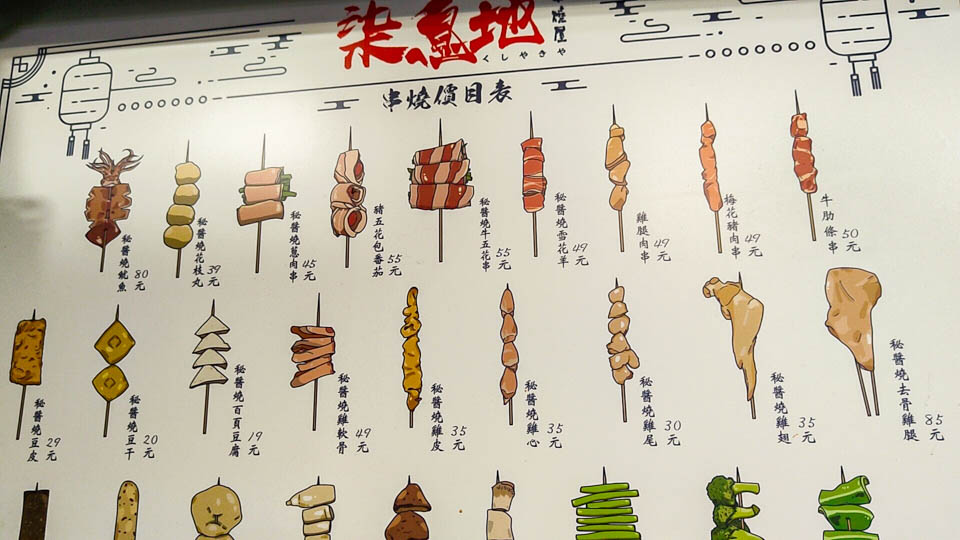 柒息地
串燒屋
くしやきや
串燒價目表
秘醬燒魷魚 80元
秘醬燒花枝丸 39元
秘醬燒蔥肉串 45元
豬五花包番茄 55元
秘醬燒牛五花串 55元
秘醬燒雪花羊 49元
雞腿肉串 49元
梅花豬肉串 49元
牛肋條串 50元
秘醬燒豆皮 29元
秘醬燒豆干 20元
秘醬燒百頁豆腐 19元
秘醬燒雞軟骨 49元
秘醬燒雞皮 35元
秘醬燒雞心 35元
秘醬燒雞尾 30元
秘醬燒雞翅 35元
秘醬燒去骨雞腿 85元